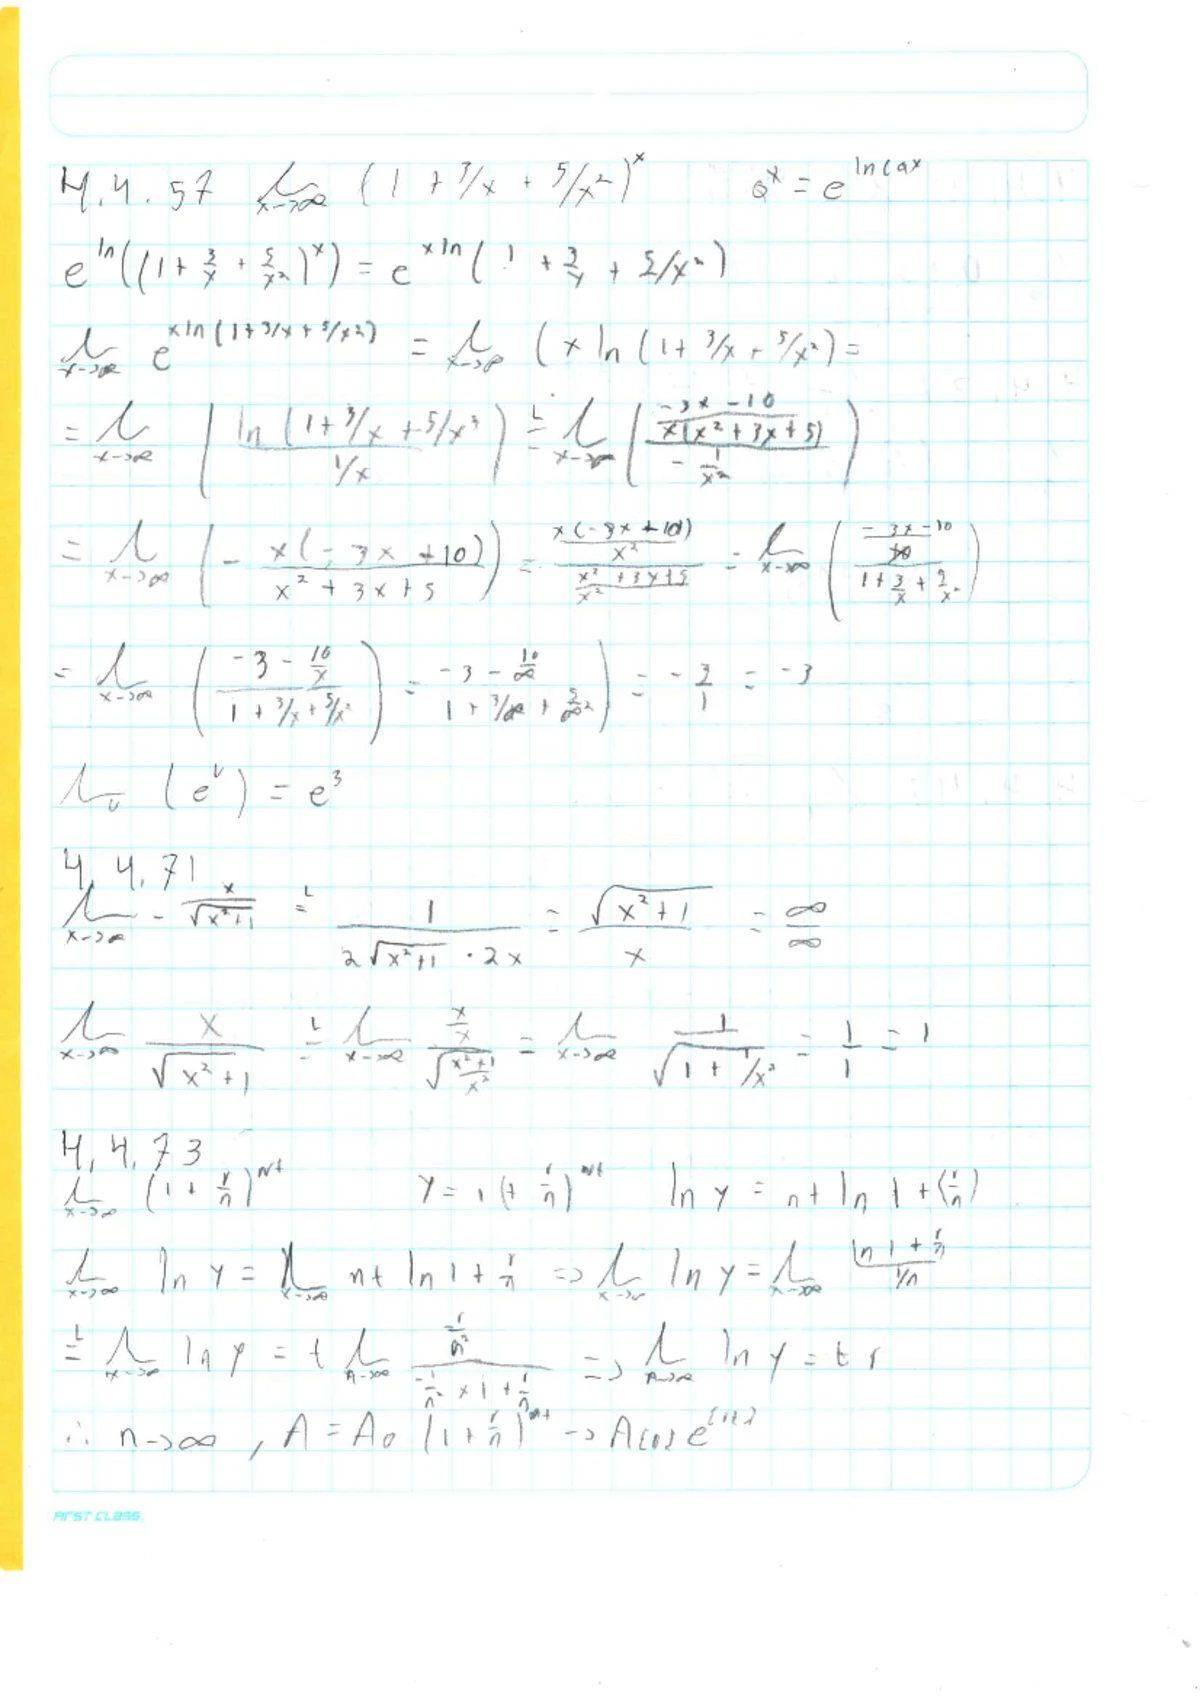 4.4.57 lim x→∞ (1 + 3/x + 5/x²)^x a^x = e^ln(a^x
e^ln((1 + 3/x + 5/x²)^x) = e^x ln(1 + 3/x + 5/x²)
lim x→∞ e^x ln(1 + 3/x + 5/x²) = lim x→∞ (x ln(1 + 3/x + 5/x²) =
= lim x→∞ (ln(1 + 3/x + 5/x³ / 1/x) =^L lim x→∞ ((-3x - 10 / x(x² + 3x + 5)) / -1/x²)
= lim x→∞ (- x(-3x + 10) / x² + 3x + 5) = (x(-3x + 10) / x²) / (x²/x² + 3x + 5) = lim x→∞ (-3x - 10 / 1 + 3/x + 5/x²)
= lim x→∞ (-3 - 10/x / 1 + 3/x + 5/x²) = -3 - 10/∞ / 1 + 3/∞ + 5/∞²) = -3/1 = -3
lim (e^u) = e³
4.4.71
lim x→∞ - x/√(x²+1) =^L 1 / 2√(x²+1) · 2x = √(x²+1) / x = ∞/∞
lim x→∞ x / √(x²+1) =^L lim x→∞ (x/x) / √(x²+1 / x²) = lim x→∞ 1 / √(1 + 1/x²) = 1/1 = 1
4.4.73
lim x→∞ (1 + r/n)^nt y = 1(+ r/n)^nt ln y = nt ln 1 + (r/n)
lim x→∞ ln y = lim x→∞ nt ln 1 + r/n => lim x→∞ ln y = lim x→∞ ln 1 + r/n / 1/n
=^L lim x→∞ ln y = t lim n→∞ (-r/n²) / (-1/n² × 1 + r/n) => lim n→∞ ln y = t r
∴ n→∞, A = A₀ (1 + r/n)^nt → A(0) e^(rt)
FIRST CLASS